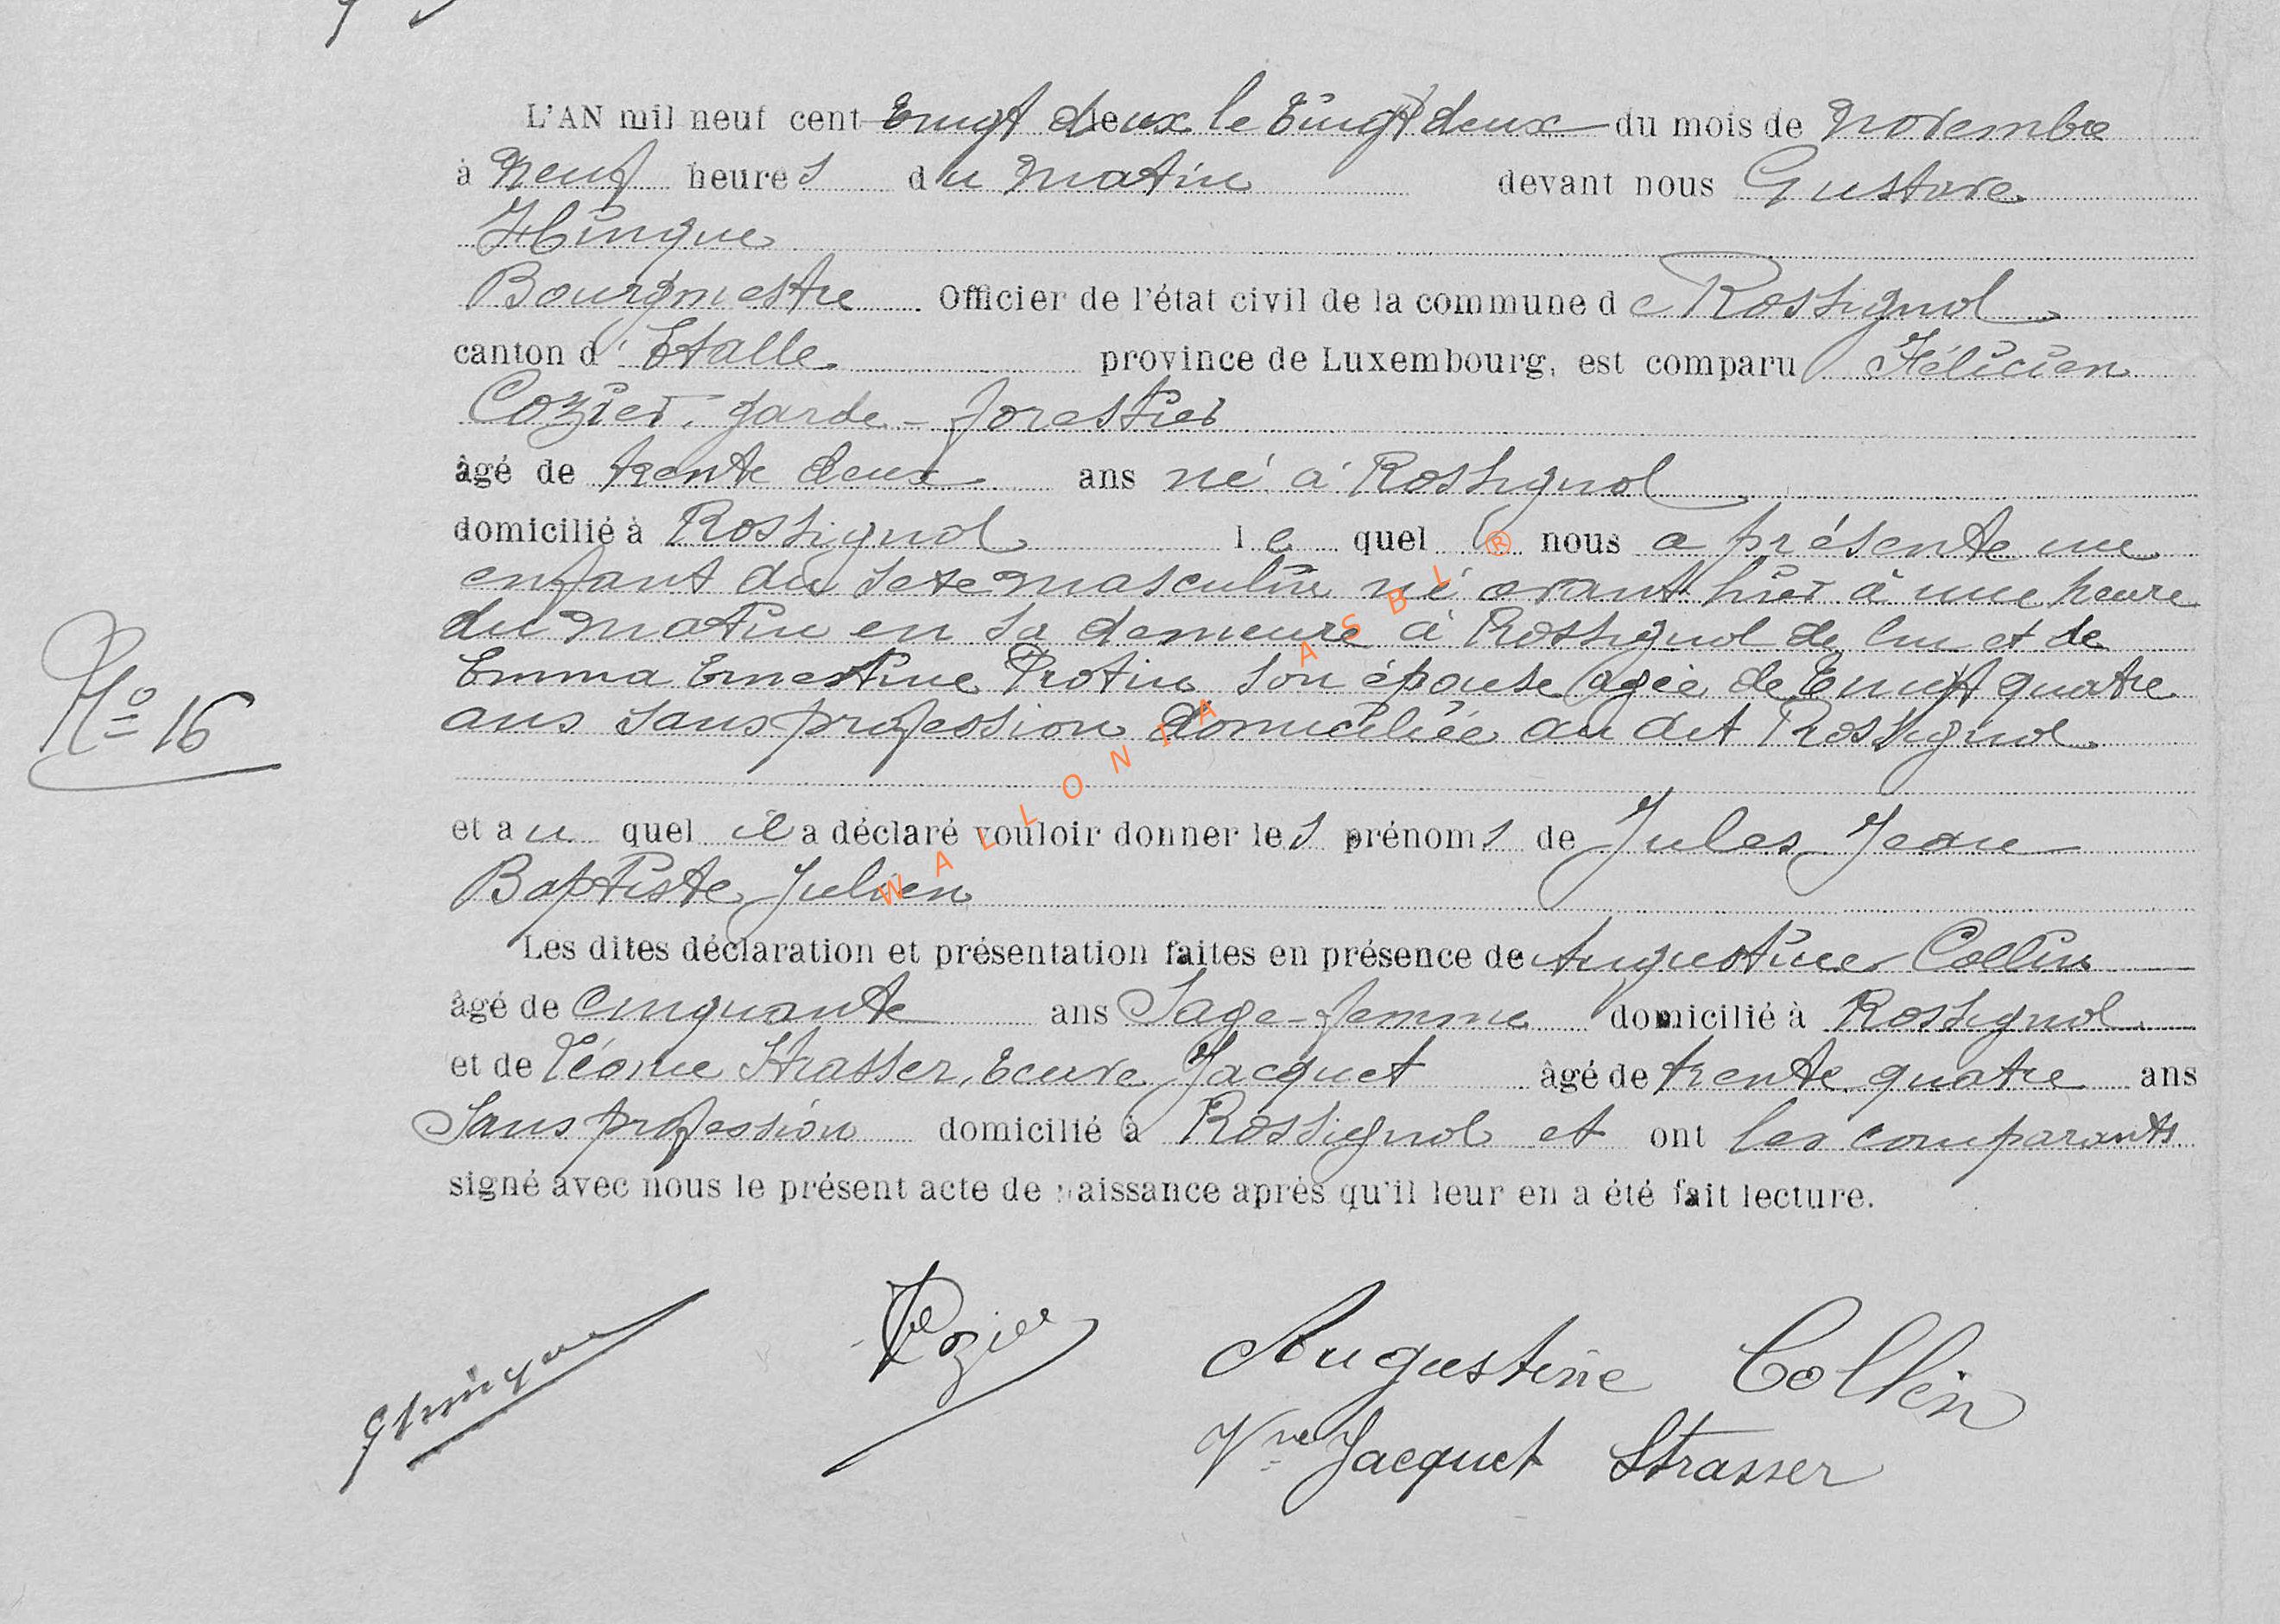 L'AN mil neuf cent vingt deux le vingt deux du mois de Novembre
à Neuf heures du Matin devant nous Gustave
Hinque
Bourgmestre Officier de l'état civil de la commune de Rossignol
canton d'Etalle province de Luxembourg, est comparu Félicien
Cozier, garde-forestier
âgé de trente deux ans né à Rossignol
domicilié à Rossignol lequel nous a présenté un
enfant du sexe masculin né avant hier à une heure
du matin en sa demeure à Rossignol de lui et de
Emma Ernestine Protin son épouse agée de vingt quatre
ans sans profession domiciliée au dit Rossignol
No 16
et au quel il a déclaré vouloir donner les prénoms de Jules Jean
Baptiste Julien
Les dites déclaration et présentation faites en présence de Augustine Collin
âgé de cinquante ans Sage-femme domicilié à Rossignol
et de Léonie Strasser, veuve Jacquet âgé de trente quatre ans
Sans profession domicilié à Rossignol et ont les comparants
signé avec nous le présent acte de naissance après qu'il leur en a été fait lecture.
GHinque Cozier Augustine Collin
Vve Jacquet Strasser
WALLONIA ASBL ®